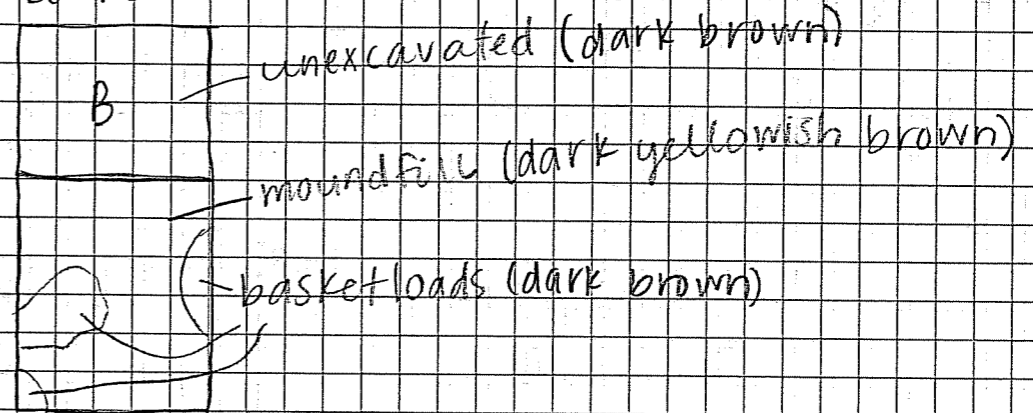 unexcavated (dark brown)
B
moundfill (dark yellowish brown)
basketloads (dark brown)